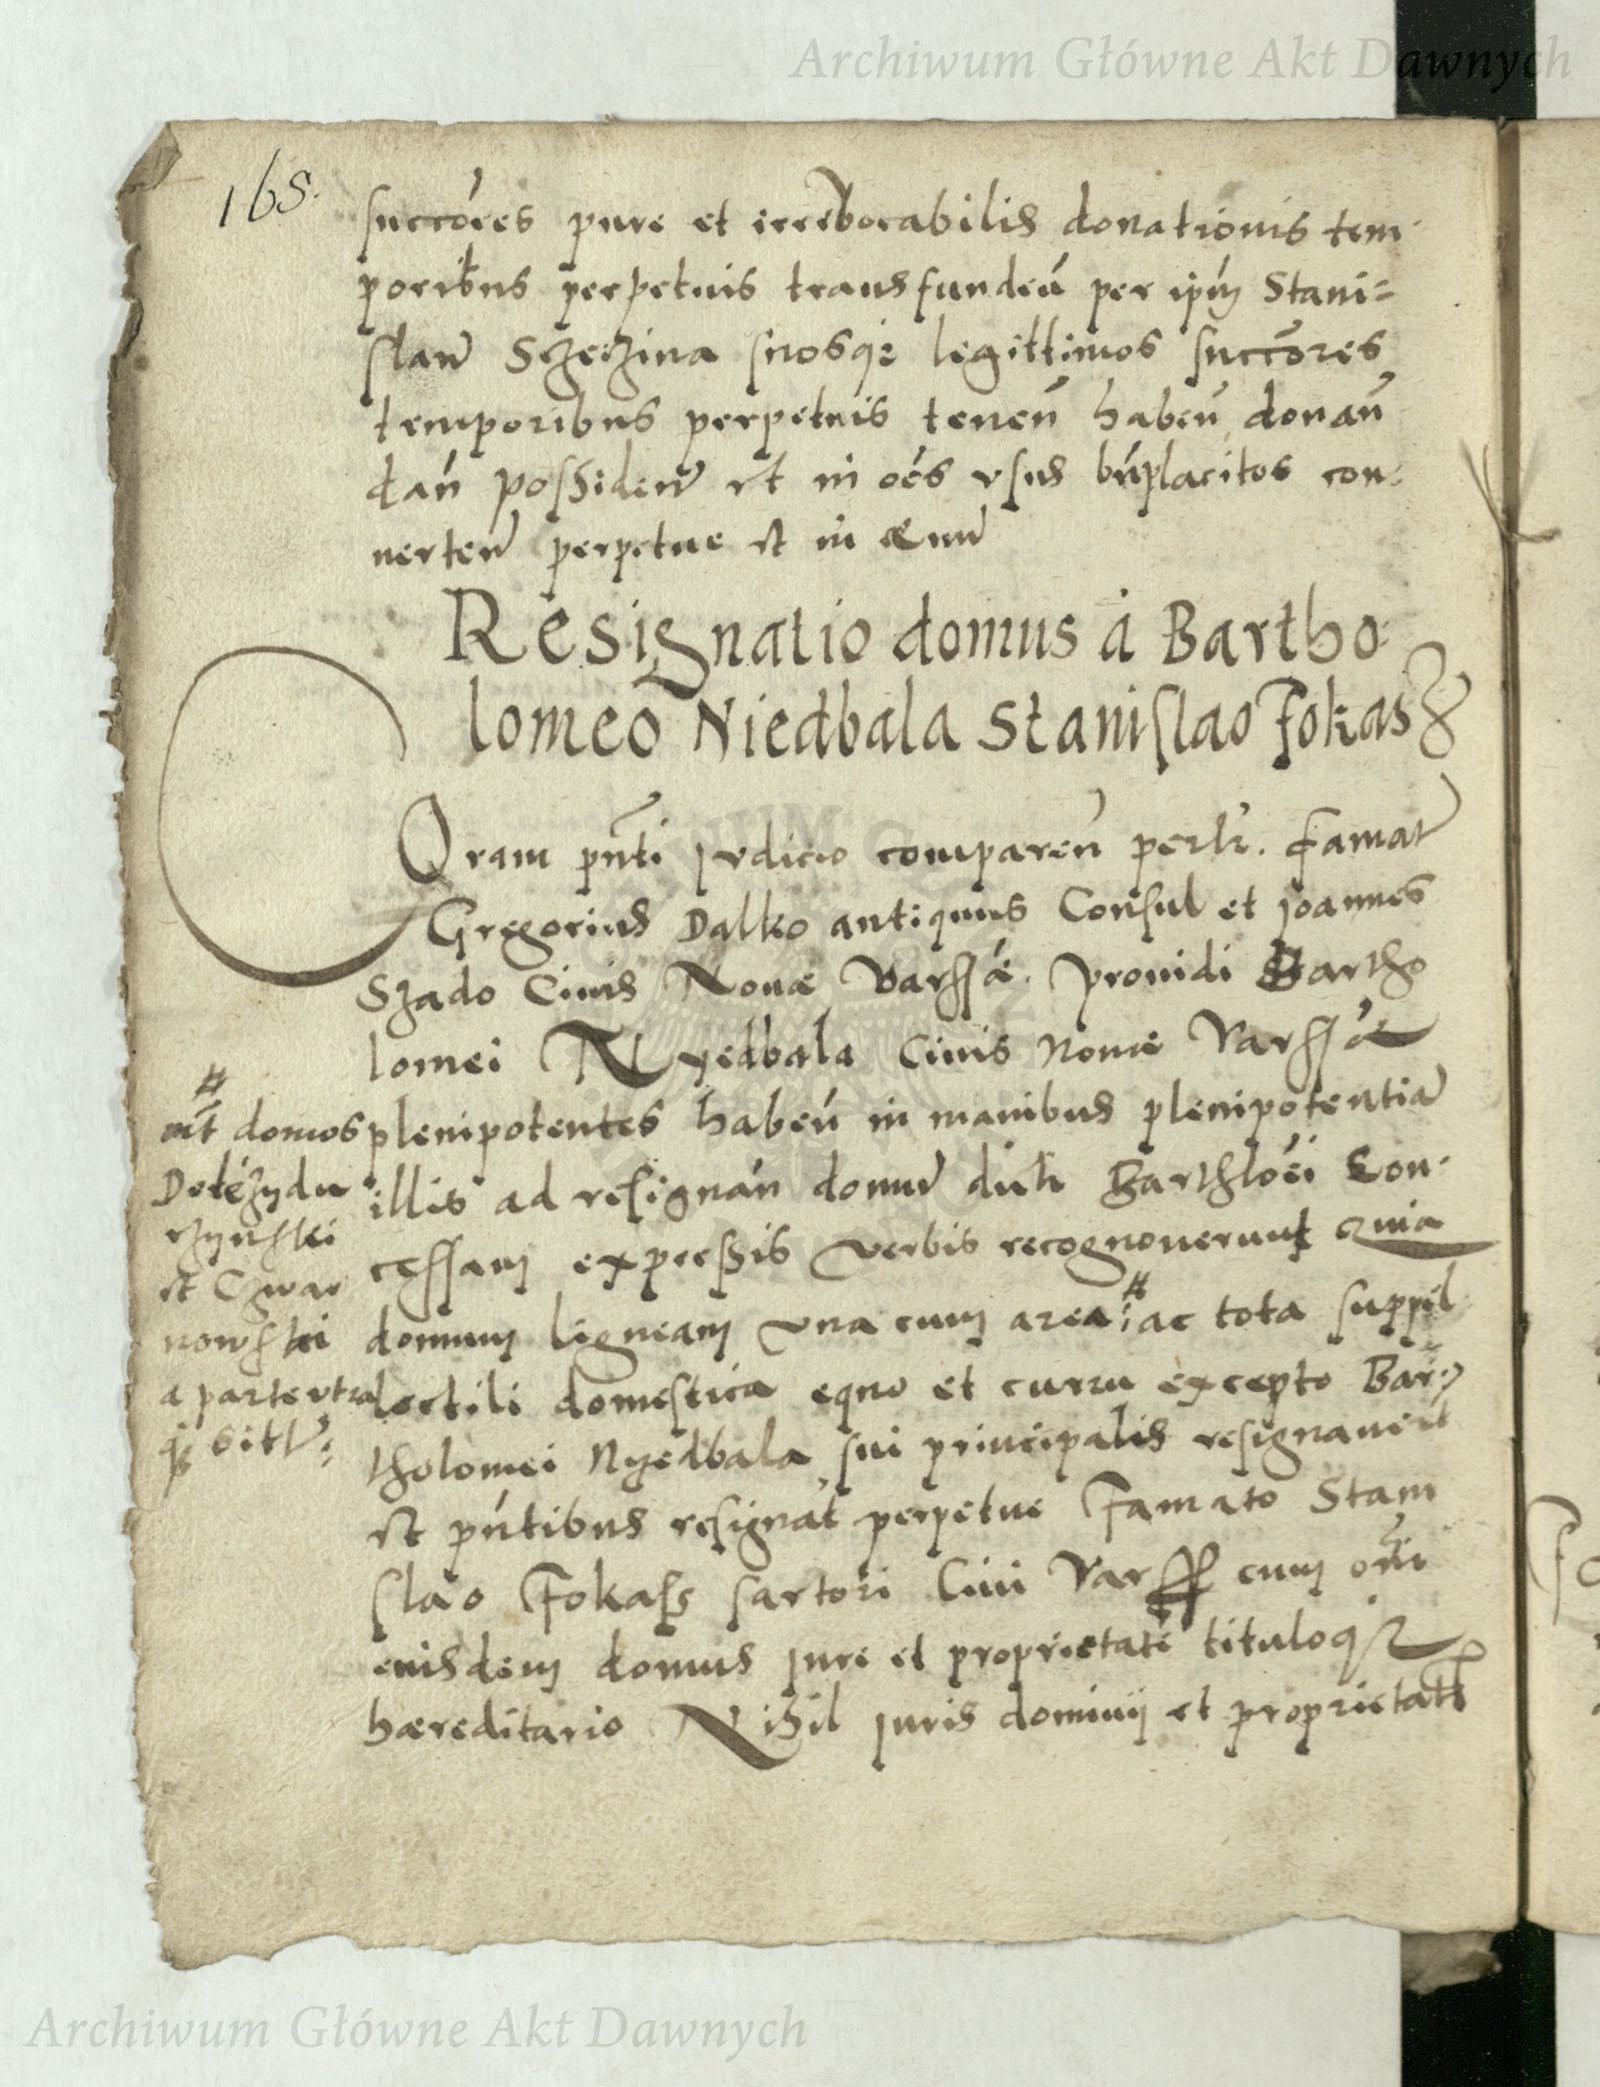 Archiwum Główne Akt Dawnych
168.
succores pure et irrevocabilis donationis tem
poribus perpetuis transfundeñ per ipm Stani=
slaum Szczezina suosq; legittimos succores
temporibus perpetuis teneñ habeñ donañ
dañ possideñ et in oes vsus bnplacitos con
uerteñ perpetue et in aeuum
Resignatio domus a Bartho
lomeo Niedbala Stanislao Fokasz
Coram pnti judicio compareñ perlr. famat
Gregorius Dalko antiquus Consul et joannes
Szado Ciuis Nouæ Varssæ. prouidi Bartho
lomei Nyedbala Ciuis Noue Varssæ
plenipotentes habeñ in manibus plenipotentiam
illis ad resignañ domum dicti Bartholoei Con
cessam expressis verbis recognouerunt quia
domum ligneam vna cum area # ac tota suppel
lectili domestica equo et curru excepto Bar
tholomei Nyedbala sui principalis resignauert
et pntibus resignat perpetue Famato Stani
slao Fokass sartori Ciui Varss cum omi
eiusdem domus jure et proprietate tituloq;
hæreditario Nihil juris dominij et proprietatis
#
int domos
et
nowskei
a parte vtra
q; sitt
Archiwum Główne Akt Dawnych